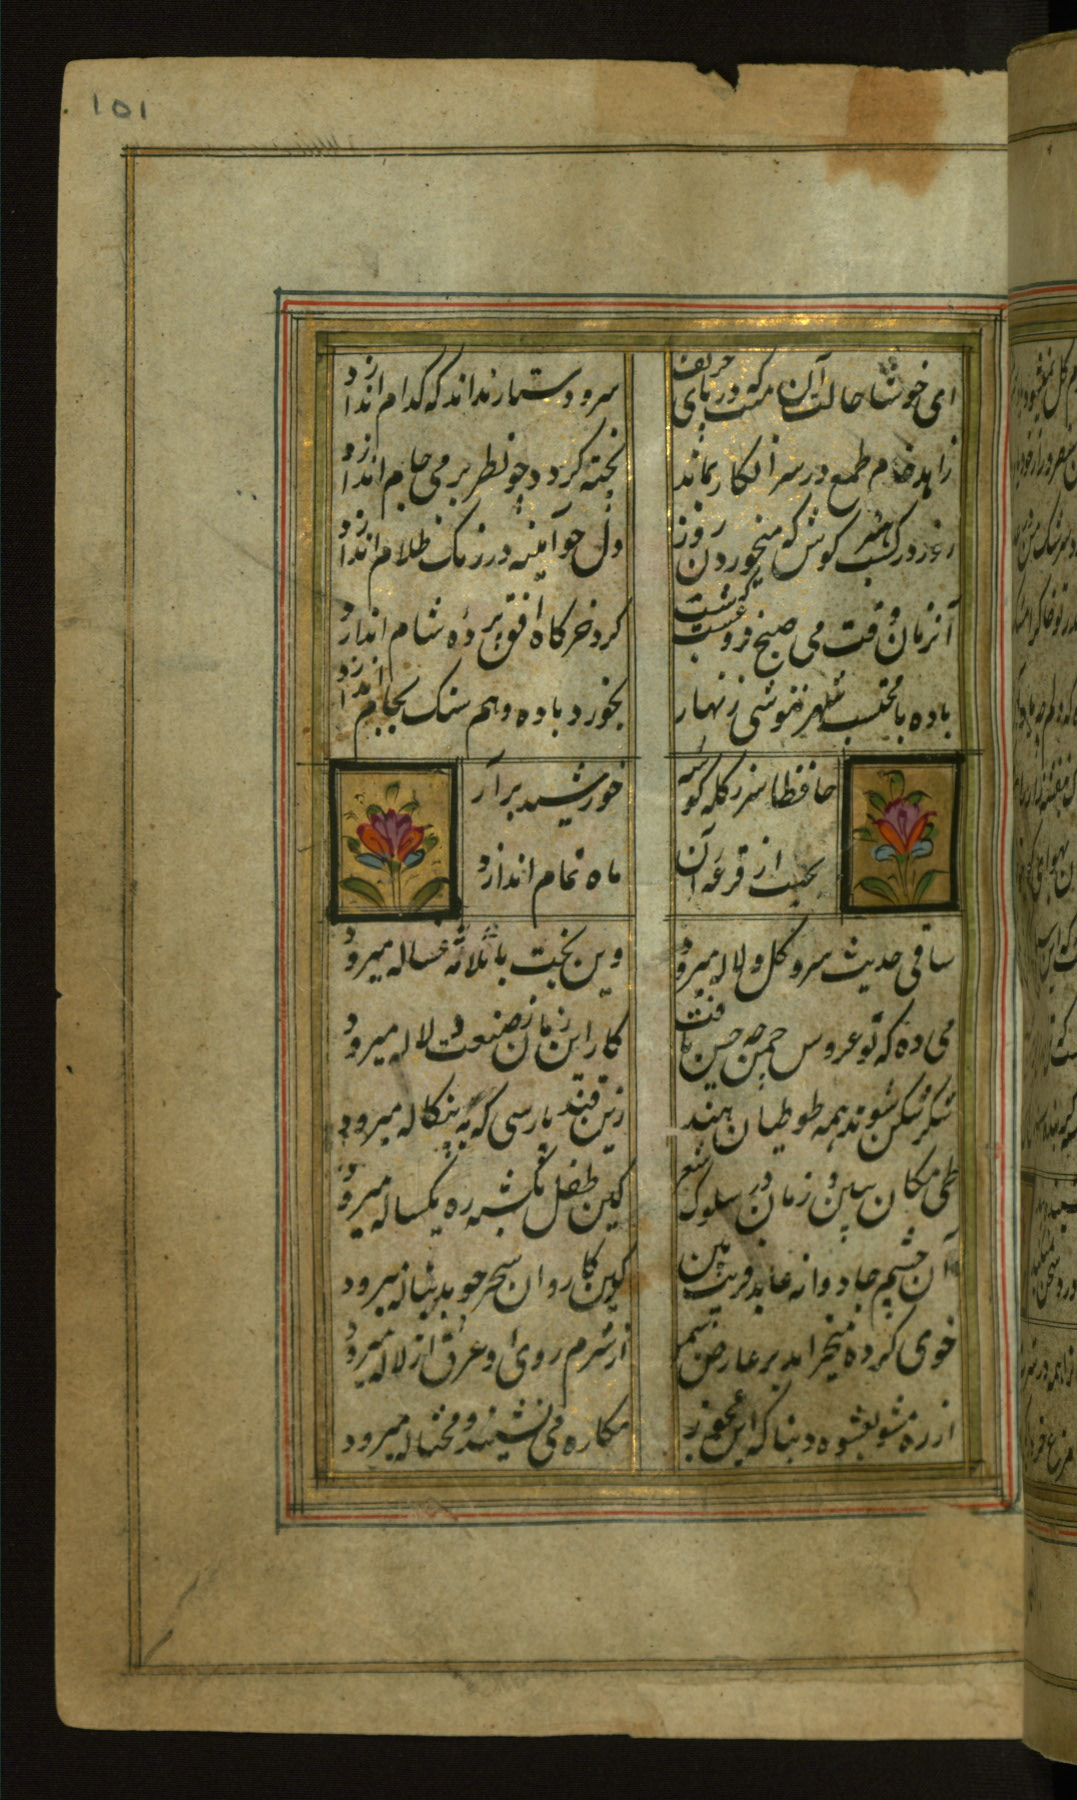 101
ای خوشا حالت آن مست که در پای حریف
سر و دستار نداند که کدام اندازد
زاهد خام طمع در سر انکار بماند
پخته گردد چو نظر بر می جام اندازد
روز در کسب هنر کوش که میخوردن روز
دل چو آینه در زنک ظلام اندازد
آنزمان وقت می صبح فروغست که شب
کرد خرکاه افق پرده شام اندازد
باده با محتسب شهر ننوشی زنهار
بخورد باده و هم سنک بجام اندازد
حافظا سر ز کله کوشه
خورشید برآر
بختت ار قرعه آن
ماه تمام اندازد
ساقی حدیث سرو و کل و لاله میرود
وین بحث با ثلاثه غساله میرود
می ده که نو عروس چمن حد حسن یافت
کار این زمان ز صنعت دلاله میرود
شکر شکن شوند همه طوطیان هند
زین قند پارسی که به بنکاله میرود
طی مکان ببین و زمان در سلوک شعر
کین طفل یکشبه ره یکساله میرود
آن چشم جادوانه عابد فریب بین
کش کاروان سحر بدنباله میرود
خوی کرده میخرامد بر عارض سمن
از شرم روی او عرق از لاله میرود
از ره مشو بعشوه دنیا که این عجوز
مکاره می نشیند و محتاله میرود